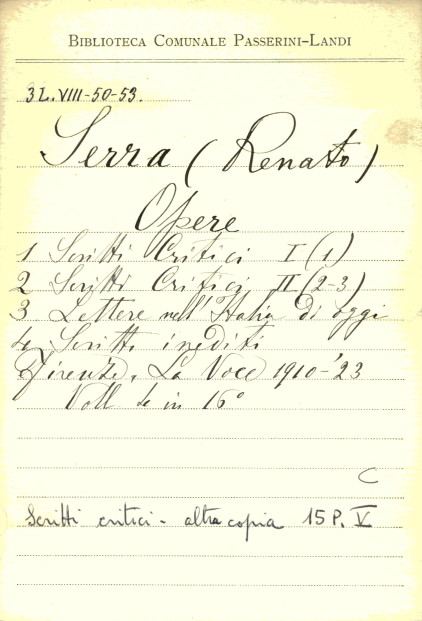 BIBLIOTECA COMUNALE PASSERINI-LANDI
3L.VIII-50-53.
Serra (Renato)
Opere
1 Scritti Critici I (1)
2 Scritti Critici II (2-3)
3 Lettere nell'Italia di oggi
4 Scritti inediti
Firenze, La Voce 1910-'23
Voll 4 in 16°
C
Scritti critici - altra copia 15 P. V